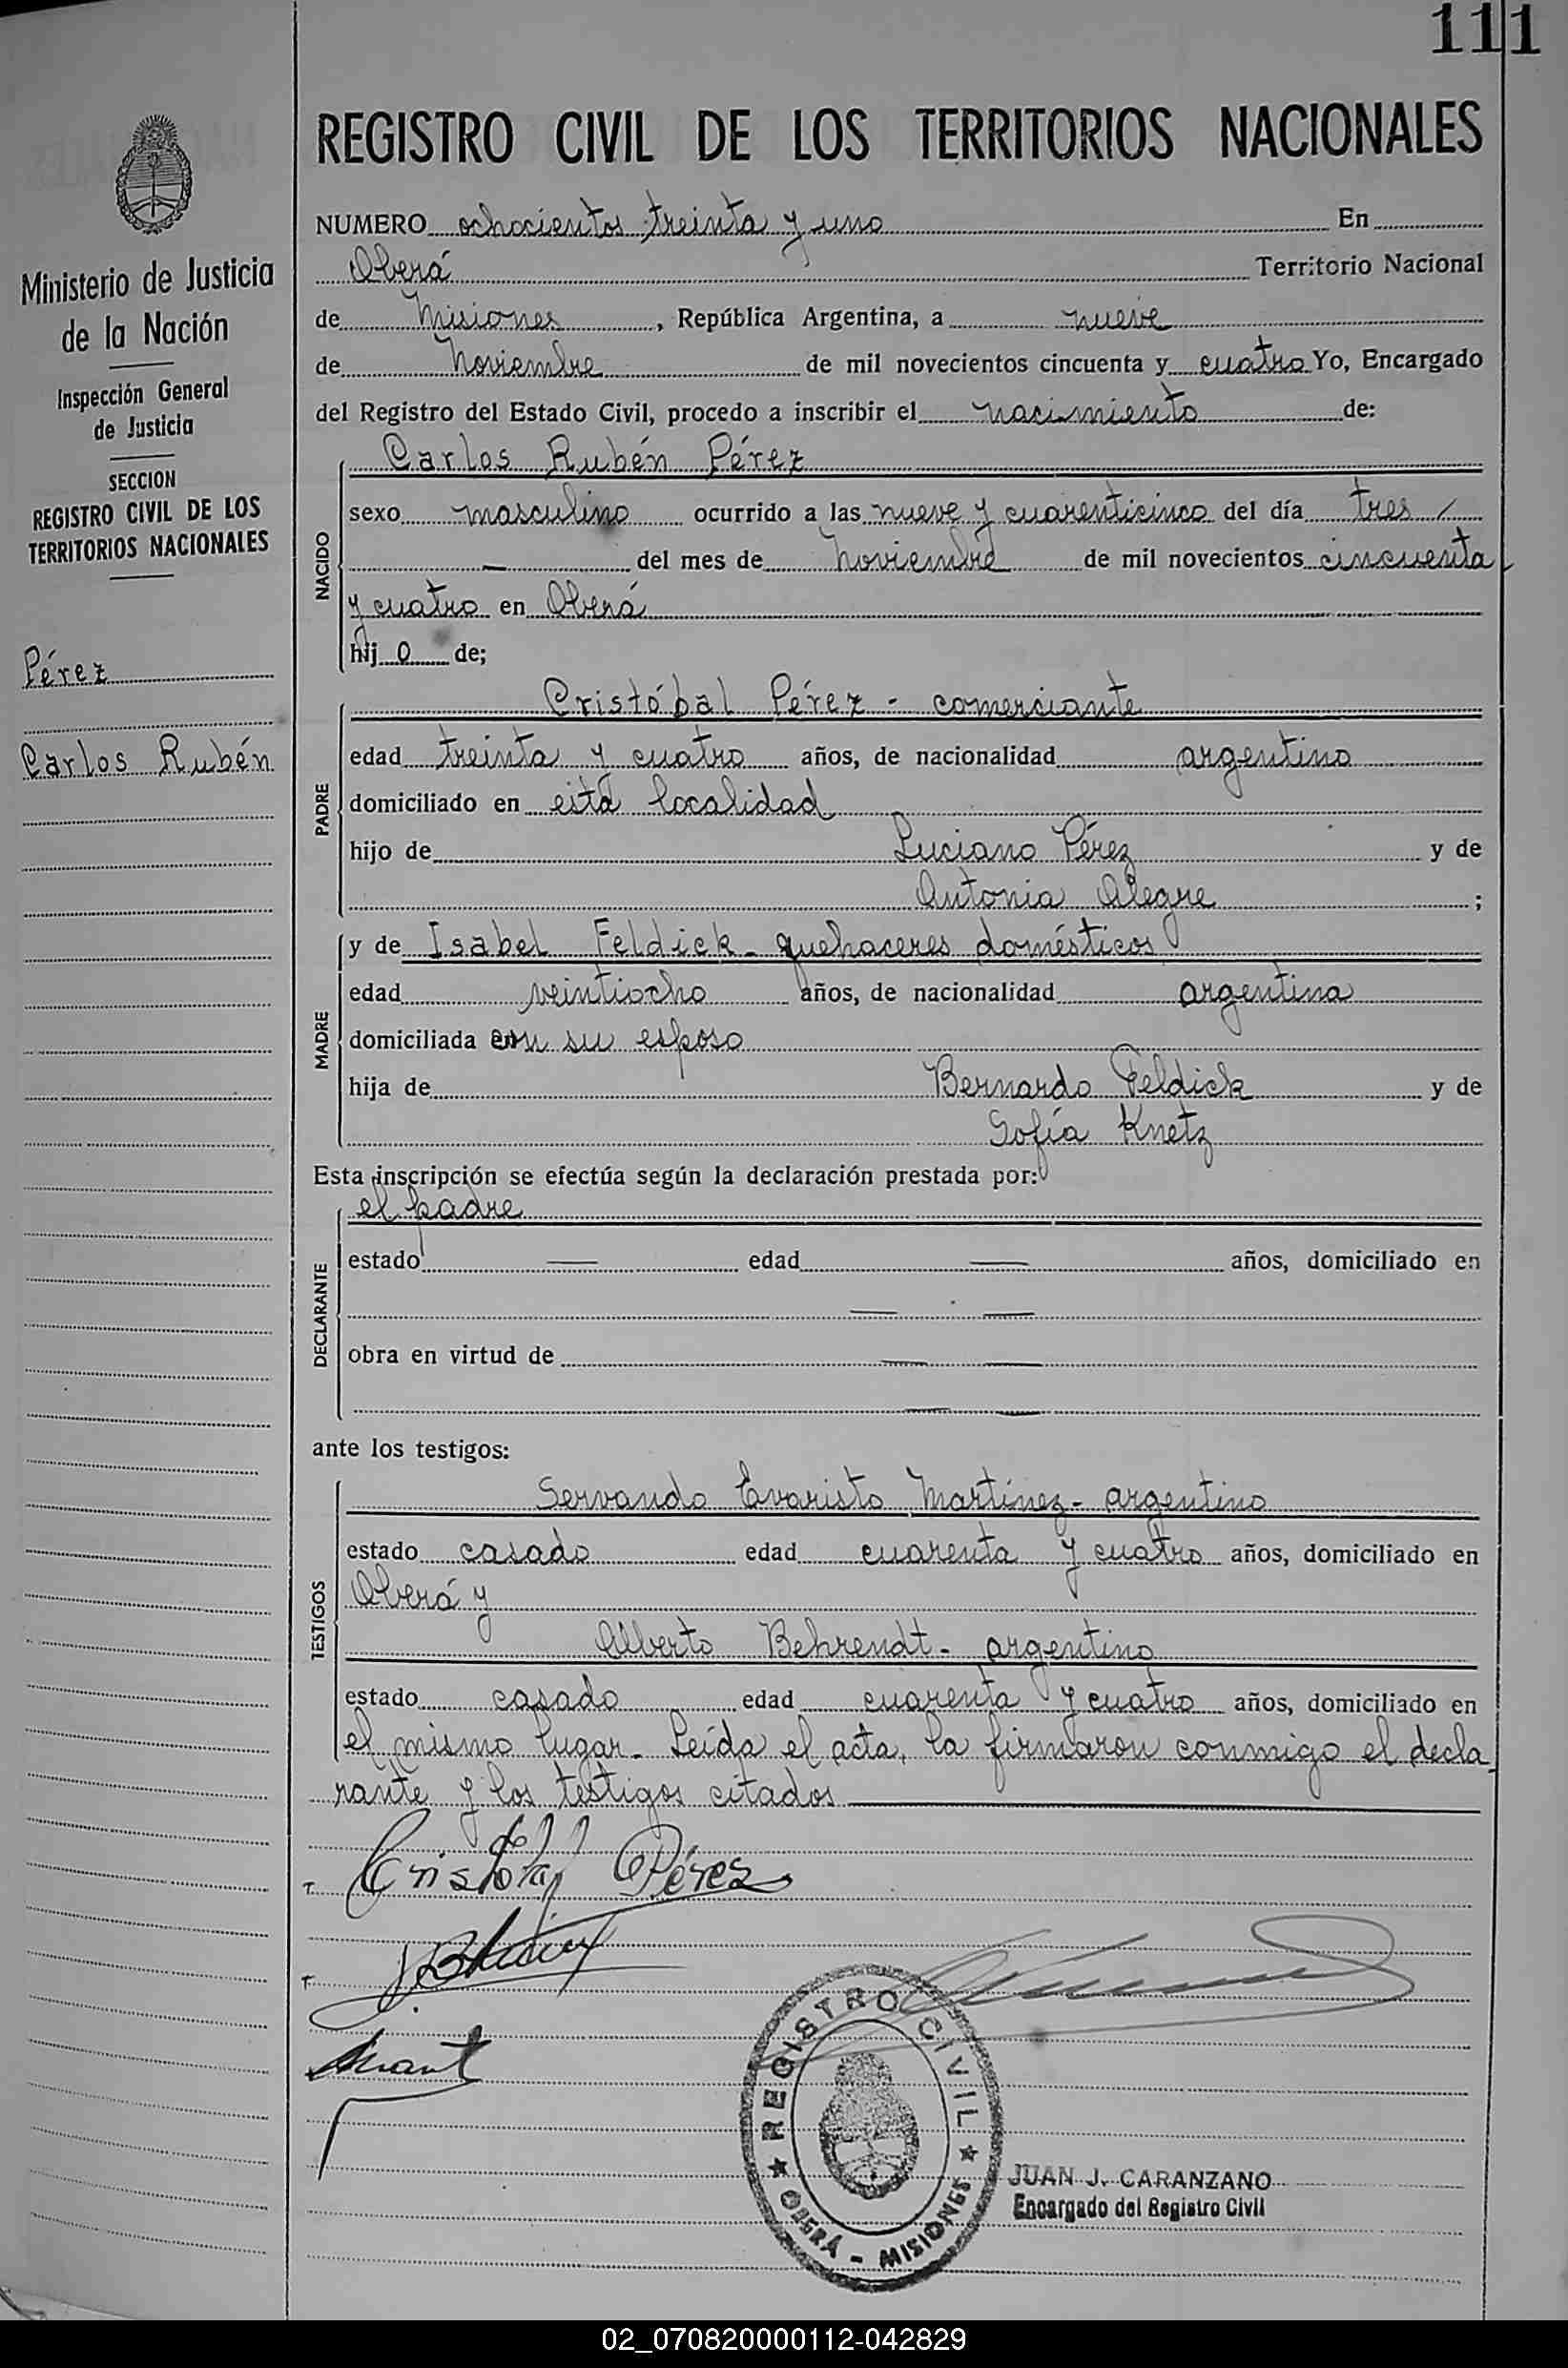 111
REGISTRO CIVIL DE LOS TERRITORIOS NACIONALES
Ministerio de Justicia
de la Nación
Inspección General
de Justicia
SECCION
REGISTRO CIVIL DE LOS
TERRITORIOS NACIONALES
Pérez
Carlos Rubén
NUMERO ochocientos treinta y uno En
Oberá Territorio Nacional
de Misiones, República Argentina, a nueve
de Noviembre de mil novecientos cincuenta y cuatro Yo, Encargado
del Registro del Estado Civil, procedo a inscribir el nacimiento de:
NACIDO
Carlos Rubén Pérez
sexo masculino ocurrido a las nueve y cuarenticinco del día tres
— del mes de Noviembre de mil novecientos cincuenta
y cuatro en Oberá
hij o de;
PADRE
Cristóbal Pérez - comerciante
edad treinta y cuatro años, de nacionalidad argentino
domiciliado en esta localidad
hijo de Luciano Pérez y de
Antonia Alegre ;
MADRE
y de Isabel Feldick - quehaceres domésticos
edad veintiocho años, de nacionalidad argentina
domiciliada con su esposo
hija de Bernardo Feldick y de
Sofía Knetz
Esta inscripción se efectúa según la declaración prestada por:
DECLARANTE
el padre
estado — edad — años, domiciliado en
— —
obra en virtud de — —
— —
ante los testigos:
TESTIGOS
Servando Evaristo Martínez - argentino
estado casado edad cuarenta y cuatro años, domiciliado en
Oberá y
Alberto Behrendt - argentino
estado casado edad cuarenta y cuatro años, domiciliado en
el mismo lugar - Leída el acta, la firmaron conmigo el decla
rante y los testigos citados
Cristóbal Pérez
REGISTRO CIVIL
OBERÁ - MISIONES
JUAN J. CARANZANO
Encargado del Registro Civil
02_070820000112-042829